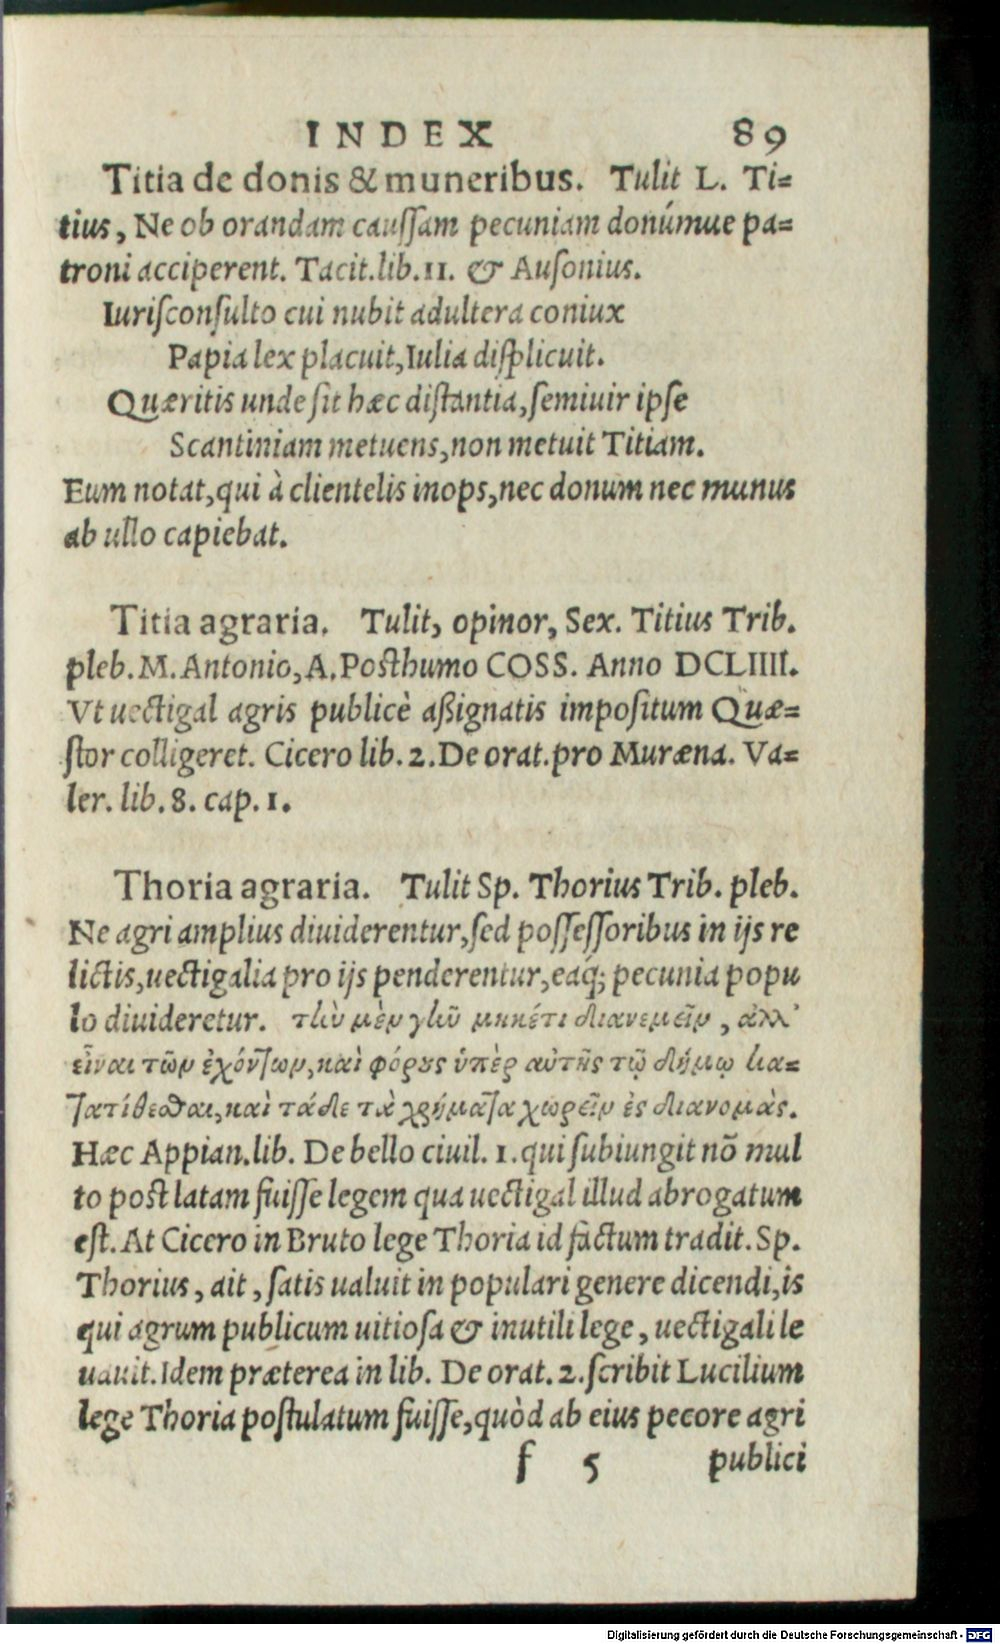 INDEX 89
Titia de donis & muneribus. Tulit L. Ti=
tius, Ne ob orandam cauſſam pecuniam donúmue pa=
troni acciperent. Tacit.lib.11. & Auſonius.
Iuriſconſulto cui nubit adultera coniux
Papia lex placuit, Iulia diſplicuit.
Quæritis unde ſit hæc diſtantia, ſemiuir ipſe
Scantiniam metuens, non metuit Titiam.
Eum notat, qui à clientelis inops, nec donum nec munus
ab ullo capiebat.
Titia agraria. Tulit, opinor, Sex. Titius Trib.
pleb. M. Antonio, A. Poſthumo COSS. Anno DCLIIII.
Vt uectigal agris publicè aßignatis impoſitum Quæ=
ſtor colligeret. Cicero lib. 2. De orat. pro Muræna. Va=
ler. lib. 8. cap. 1.
Thoria agraria. Tulit Sp. Thorius Trib. pleb.
Ne agri amplius diuiderentur, ſed poſſeſſoribus in ijs re
lictis, uectigalia pro ijs penderentur, eaq́; pecunia popu
lo diuideretur. τὴν μὲν γῆν μηκέτι διανεμεῖν, ἀλλ᾽
εἶναι τῶν ἐχόντων, καὶ φόρους ὑπὲρ αὐτῆς τῷ δήμῳ κα=
τατίθεσθαι, καὶ τάδε τὰ χρήματα χωρεῖν ἐς διανομὰς.
Hæc Appian. lib. De bello ciuil. 1. qui ſubiungit nõ mul
to poſt latam fuiſſe legem qua uectigal illud abrogatum
eſt. At Cicero in Bruto lege Thoria id factum tradit. Sp.
Thorius, ait, ſatis ualuit in populari genere dicendi, is
qui agrum publicum uitioſa & inutili lege, uectigali le
uauit. Idem præterea in lib. De orat. 2. ſcribit Lucilium
lege Thoria poſtulatum fuiſſe, quòd ab eius pecore agri
f 5 publici
Digitalisierung gefördert durch die Deutsche Forschungsgemeinschaft - DFG